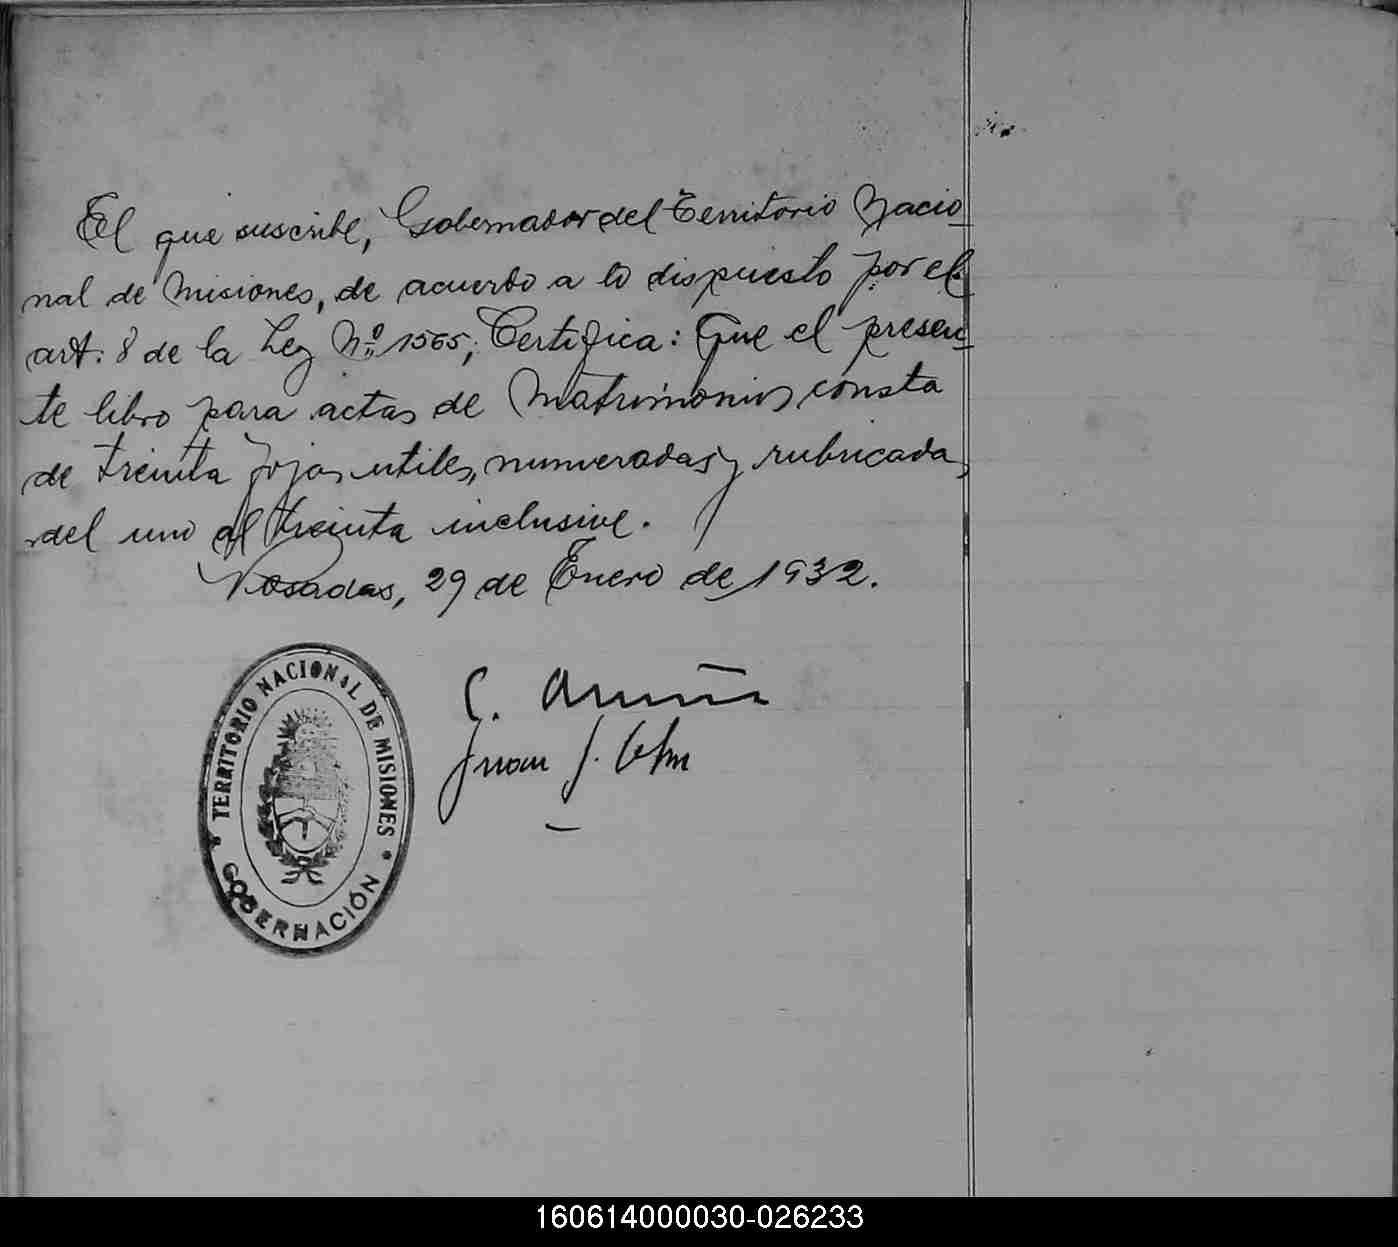 El que suscribe, Gobernador del Territorio Nacio_
nal de Misiones, de acuerdo a lo dispuesto por el
art. 8 de la Ley Nº 1565, Certifica: Que el presen_
te libro para actas de Matrimonios consta
de treinta fojas utiles, numeradas y rubricadas
del uno al treinta inclusive.
Posadas, 29 de Enero de 1932.
TERRITORIO NACIONAL DE MISIONES
GOBERNACIÓN
Juan J.
160614000030-026233